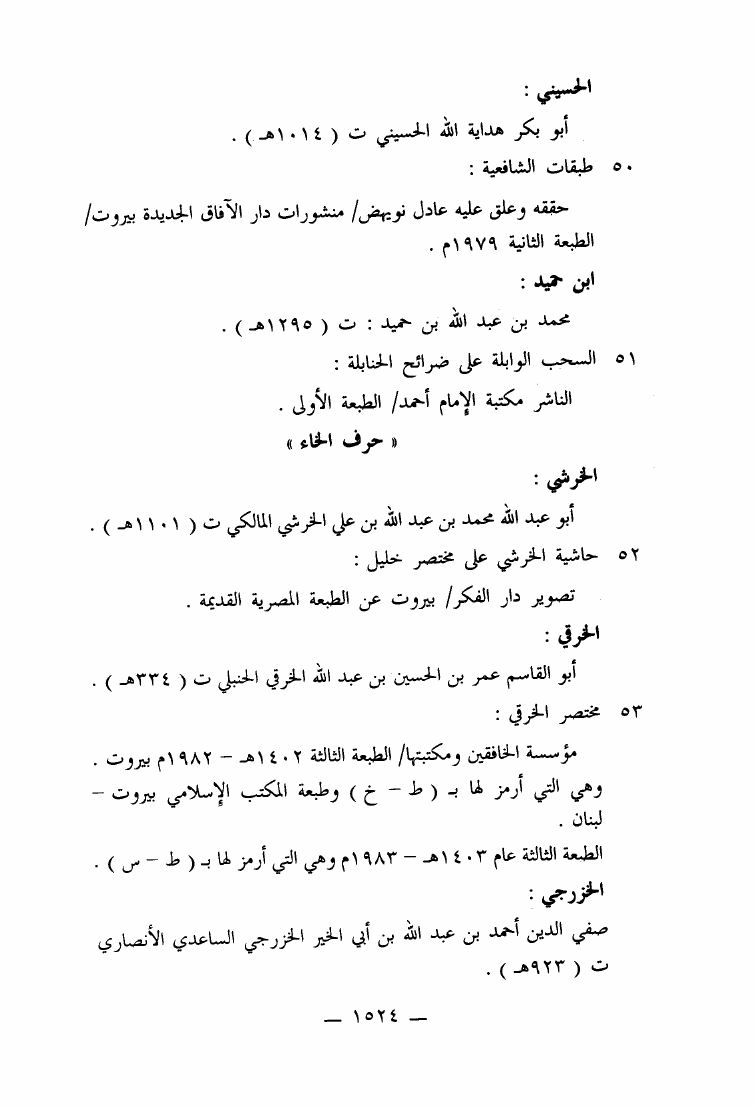 الحسيني :
أبو بكر هداية الله الحسيني ت ( ١٠١٤هـ ) .
٥٠ طبقات الشافعية :
حققه وعلق عليه عادل نويهض/ منشورات دار الآفاق الجديدة بيروت/
الطبعة الثانية ١٩٧٩م .
ابن حميد :
محمد بن عبد الله بن حميد : ت ( ١٢٩٥هـ ) .
٥١ السحب الوابلة على ضرائح الحنابلة :
الناشر مكتبة الإمام أحمد/ الطبعة الأولى .
« حرف الخاء »
الخرشي :
أبو عبد الله محمد بن عبد الله بن علي الخرشي المالكي ت ( ١١٠١هـ ) .
٥٢ حاشية الخرشي على مختصر خليل :
تصوير دار الفكر/ بيروت عن الطبعة المصرية القديمة .
الخرقي :
أبو القاسم عمر بن الحسين بن عبد الله الخرقي الحنبلي ت ( ٣٣٤هـ ) .
٥٣ مختصر الخرقي :
مؤسسة الخافقين ومكتبتها/ الطبعة الثالثة ١٤٠٢هـ – ١٩٨٢م بيروت .
وهي التي أرمز لها بـ ( ط – خ ) وطبعة المكتب الإسلامي بيروت –
لبنان .
الطبعة الثالثة عام ١٤٠٣هـ – ١٩٨٣م وهي التي أرمز لها بـ ( ط – س ) .
الخزرجي :
صفي الدين أحمد بن عبد الله بن أبي الخير الخزرجي الساعدي الأنصاري
ت ( ٩٢٣هـ ) .
— ١٥٢٤ —